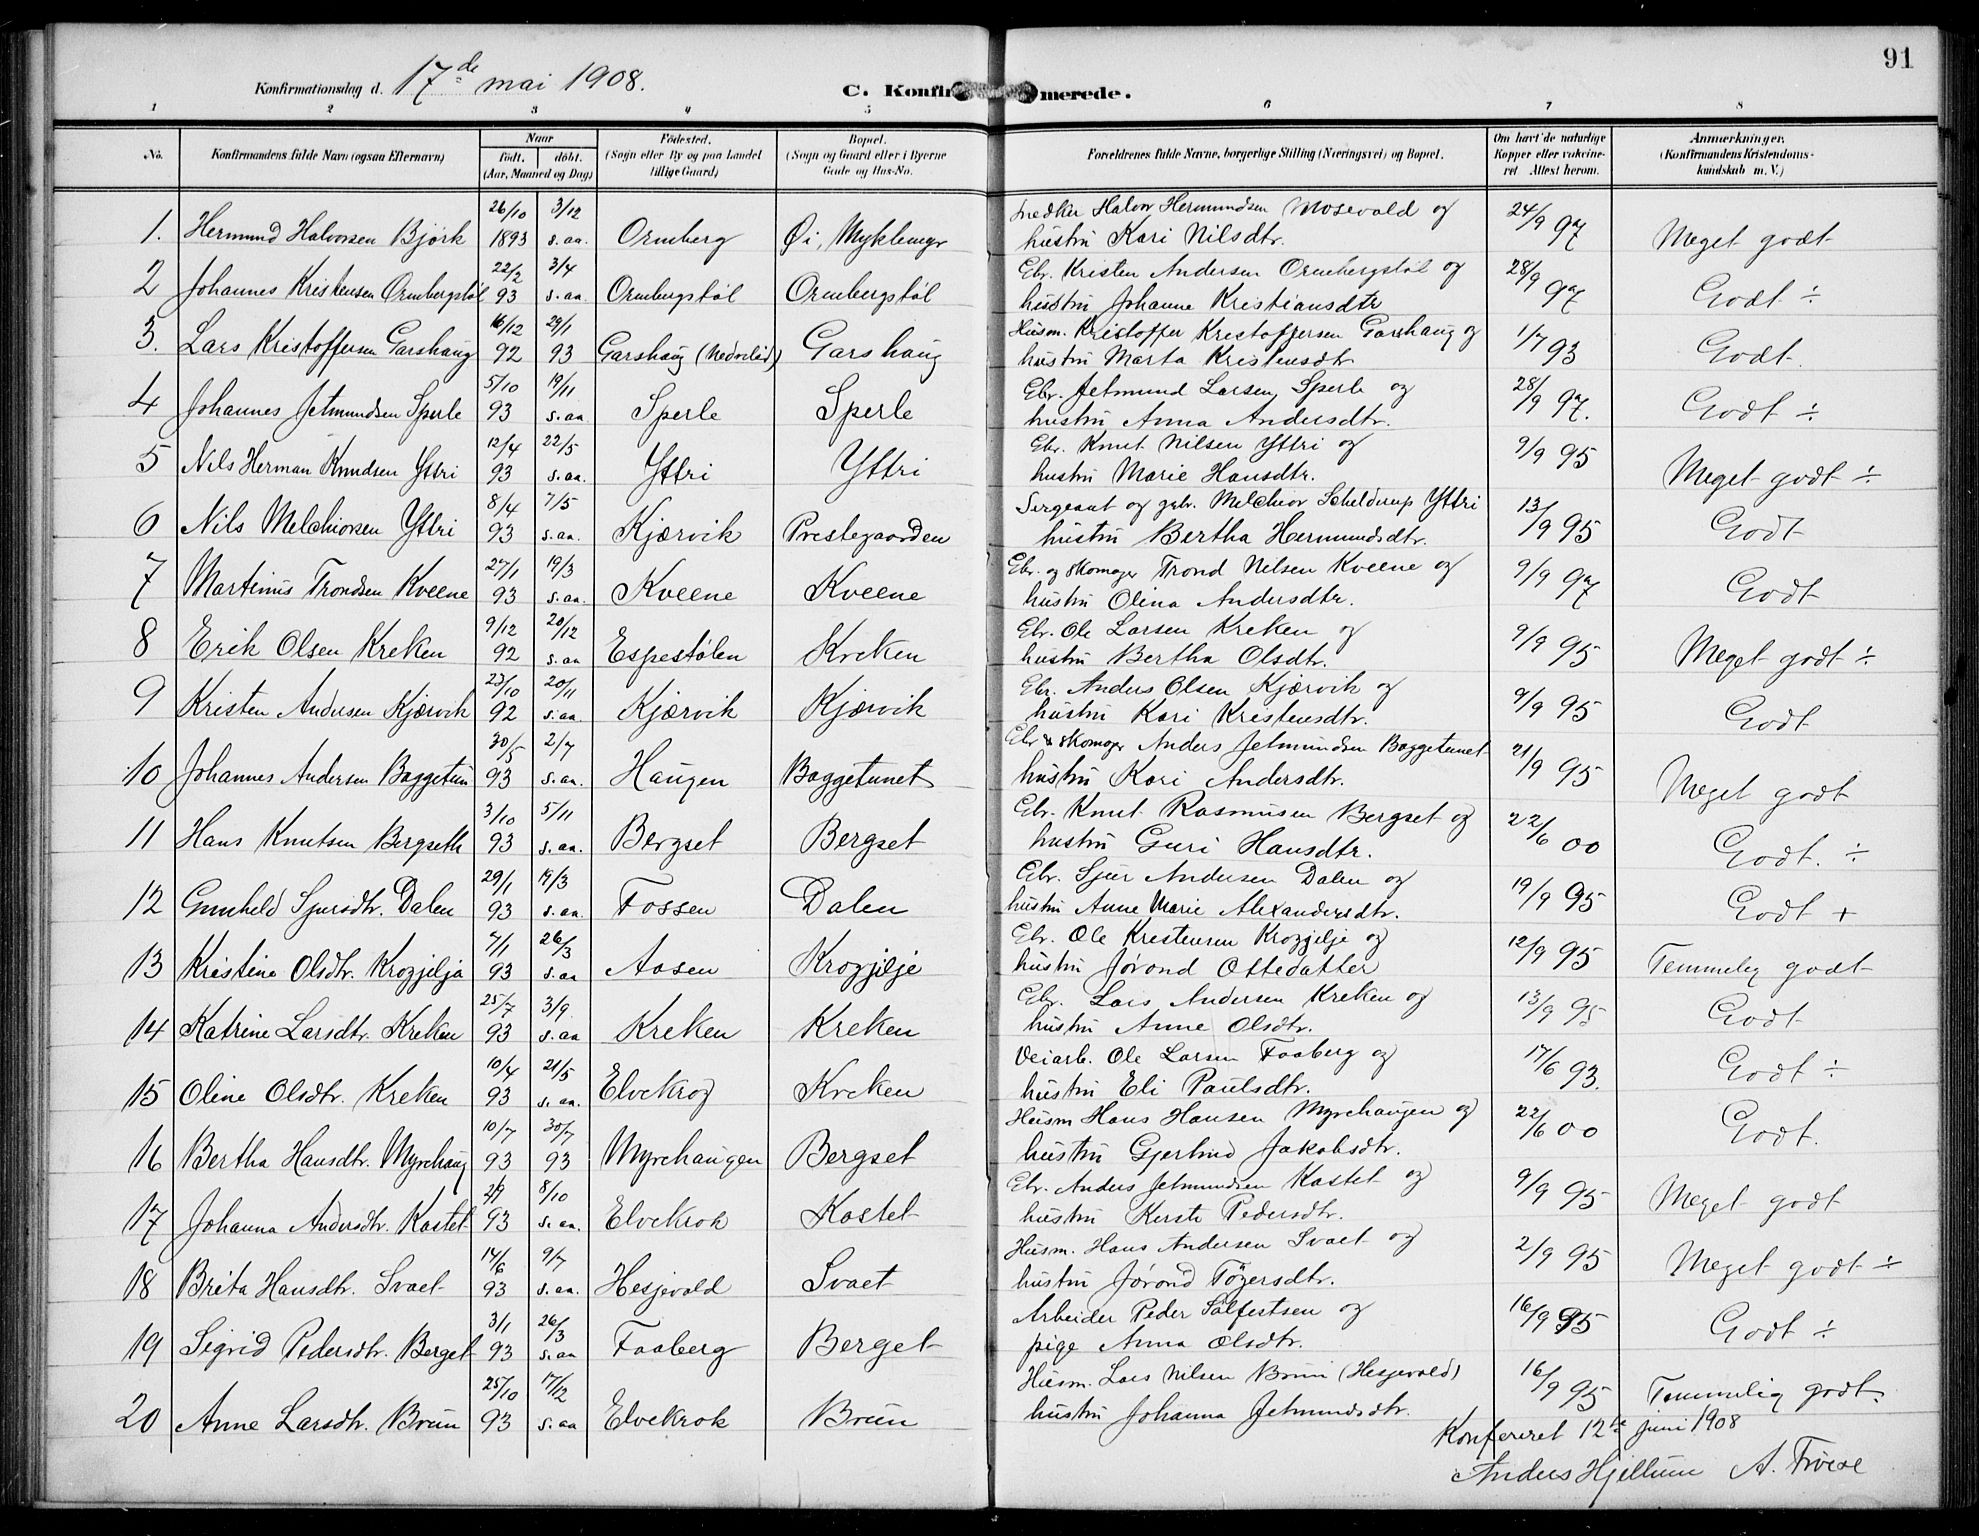 91
Konfirmationsdag d. 17de mai 1908.
C. Konfirmerede.
1 2 3 4 5 6 7 8
No. Konfirmandens fulde Navn (ogsaa Efternavn) Naar født. døbt. (Aar, Maaned og Dag) Fødested. (Sogn eller By og paa Landet tillige Gaard) Bopæl. (Sogn og Gaard eller i Byerne Gade og Hus-No. Forældrenes fulde Navne, borgerlige Stilling (Næringsvei) og Bopæl. Om havt de naturlige Kopper eller vakcineret. Attest herom. Anmerkninger. (Konfirmandens Kristendomskundskab m. V.)
26/10 3/12 Snedker Halvor Hermundsen Mosevold og 24/9 97
1. Hermund Halvorsen Bjørk 1893 s. aa. Ormberg Øi, Myklemyr hustru Kari Nilsdtr. Meget godt
22/2 3/4 Gbr. Kristen Andersen Ormbergstøl og 28/9 97
2 Johannes Kristensen Ormbergstøl 93 s. aa. Ormbergstøl Ormbergstøl hustru Johanne Kristiansdtr Godt ÷
16/12 29/1 Husm. Kristoffer Kristoffersen Garshaug og 1/7 93
3. Lars Kristoffersen Garshaug 92 93 Garshaug (Nedrelid) Garshaug hustru Marta Kristensdtr Godt
5/10 19/11 Gbr. Jetmund Larsen Sperle og 28/9 97.
4 Johannes Jetmundsen Sperle 93 s. aa. Sperle Sperle hustru Anna Andersdtr. Godt ÷
12/4 22/5 Gbr. Knut Nilsen Yttri og 9/9 95
5 Nils Herman Knudsen Yttri 93 s. aa. Yttri Yttri hustru Marie Hansdtr. Meget godt ÷
8/4 7/5 Sergeant og gbr. Melchior Schelderup Yttri 13/9 95
6 Nils Melchiorsen Yttri 93 s. aa. Kjærvik Prestegaarden hustru Bertha Hermundsdtr. Godt
27/1 19/3 Gbr. og skomager Trond Nilsen Kveene og 9/9 97
7 Martinus Trondsen Kveene 93 s. aa. Kveene Kveene hustru Olina Andersdtr. Godt
9/12 20/12 Gbr. Ole Larsen Kreken og 9/9 95
8 Erik Olsen Kreken 92 s. aa Espestølen Kreken hustru Bertha Olsdtr. Meget godt ÷
23/10 20/11 Gbr. Anders Olsen Kjærvik og 9/9 95
9 Kristen Andersen Kjærvik 92 s. aa. Kjærvik Kjærvik hustru Kari Kristensdtr. Godt
30/5 2/7 Gbr & skomager Anders Jetmundsen Baggetunet 21/9 95
10 Johannes Andersen Baggetun 93 s. aa. Haugen Baggetunet hustru Kari Andersdtr. Meget godt
3/10 5/11 Gbr. Knut Rasmusen Bergset og 22/6 00
11 Hans Knutsen Bergseth 93 s. aa. Bergset Bergset hustru Guri Hansdtr. Godt. ÷
29/1 19/3 Gbr. Sjur Andersen Dalen og 19/9 95
12 Gunhild Sjursdtr. Dalen 93 s. aa. Fossen Dalen hustru Anne Marie Alexandersdtr. Godt +
7/1 26/3 Gbr. Ole Kristensen Krogjilje og 12/9 95
13 Kristine Olsdtr. Krogjilja 93 s. aa Aasen Krogjilje hustru Jørond Ottedatter Temmelig godt
25/7 3/9 Gbr. Lars Andersen Kreken og 13/9 95
14 Katrine Larsdtr. Kreken 93 s. aa Kreken Kreken hustru Anne Olsdtr. Godt
10/4 21/5 Veiarb. Ole Larsen Faaberg og 17/6 93.
15 Oline Olsdtr. Kreken 93 s. aa. Elvekrog Kreken hustru Eli Paulsdtr. Godt ÷
10/7 30/7 Husm Hans Hansen Myrehaugen og 22/6 00
16 Bertha Hansdtr. Myrehaug 93 93 Myrehaugen Bergset hustru Gjertrud Jakobsdtr. Godt.
8/10 Gbr. Anders Jetmundsen Kastet og 9/9 95
17 Johanna Andersdtr. Kastet 93 s. aa. Elvekrok Kastet hustru Kersti Pedersdtr. Meget godt
14/6 9/7 Husm. Hans Andersen Svaet og 2/9 95
18 Brita Hansdtr. Svaet 93 s. aa. Hesjevold Svaet hustru Jørond Tøgersdtr. Meget godt ÷
3/1 26/3 Arbeider Peder Salfestsen og 16/9 95
19 Sigrid Pedersdtr. Berget 93 s. aa Faaberg Berget pige Anna Olsdtr. Godt ÷
25/10 17/12 Husm. Lars Nilsen Bruu (Hesjevold) 16/9 95
20 Anne Larsdtr. Bruu 93 s. aa Elvekrok Bruu hustru Johanna Jetmundsdtr. Temmelig godt
Konfereret 12te Juni 1908
Anders Hjellum A.